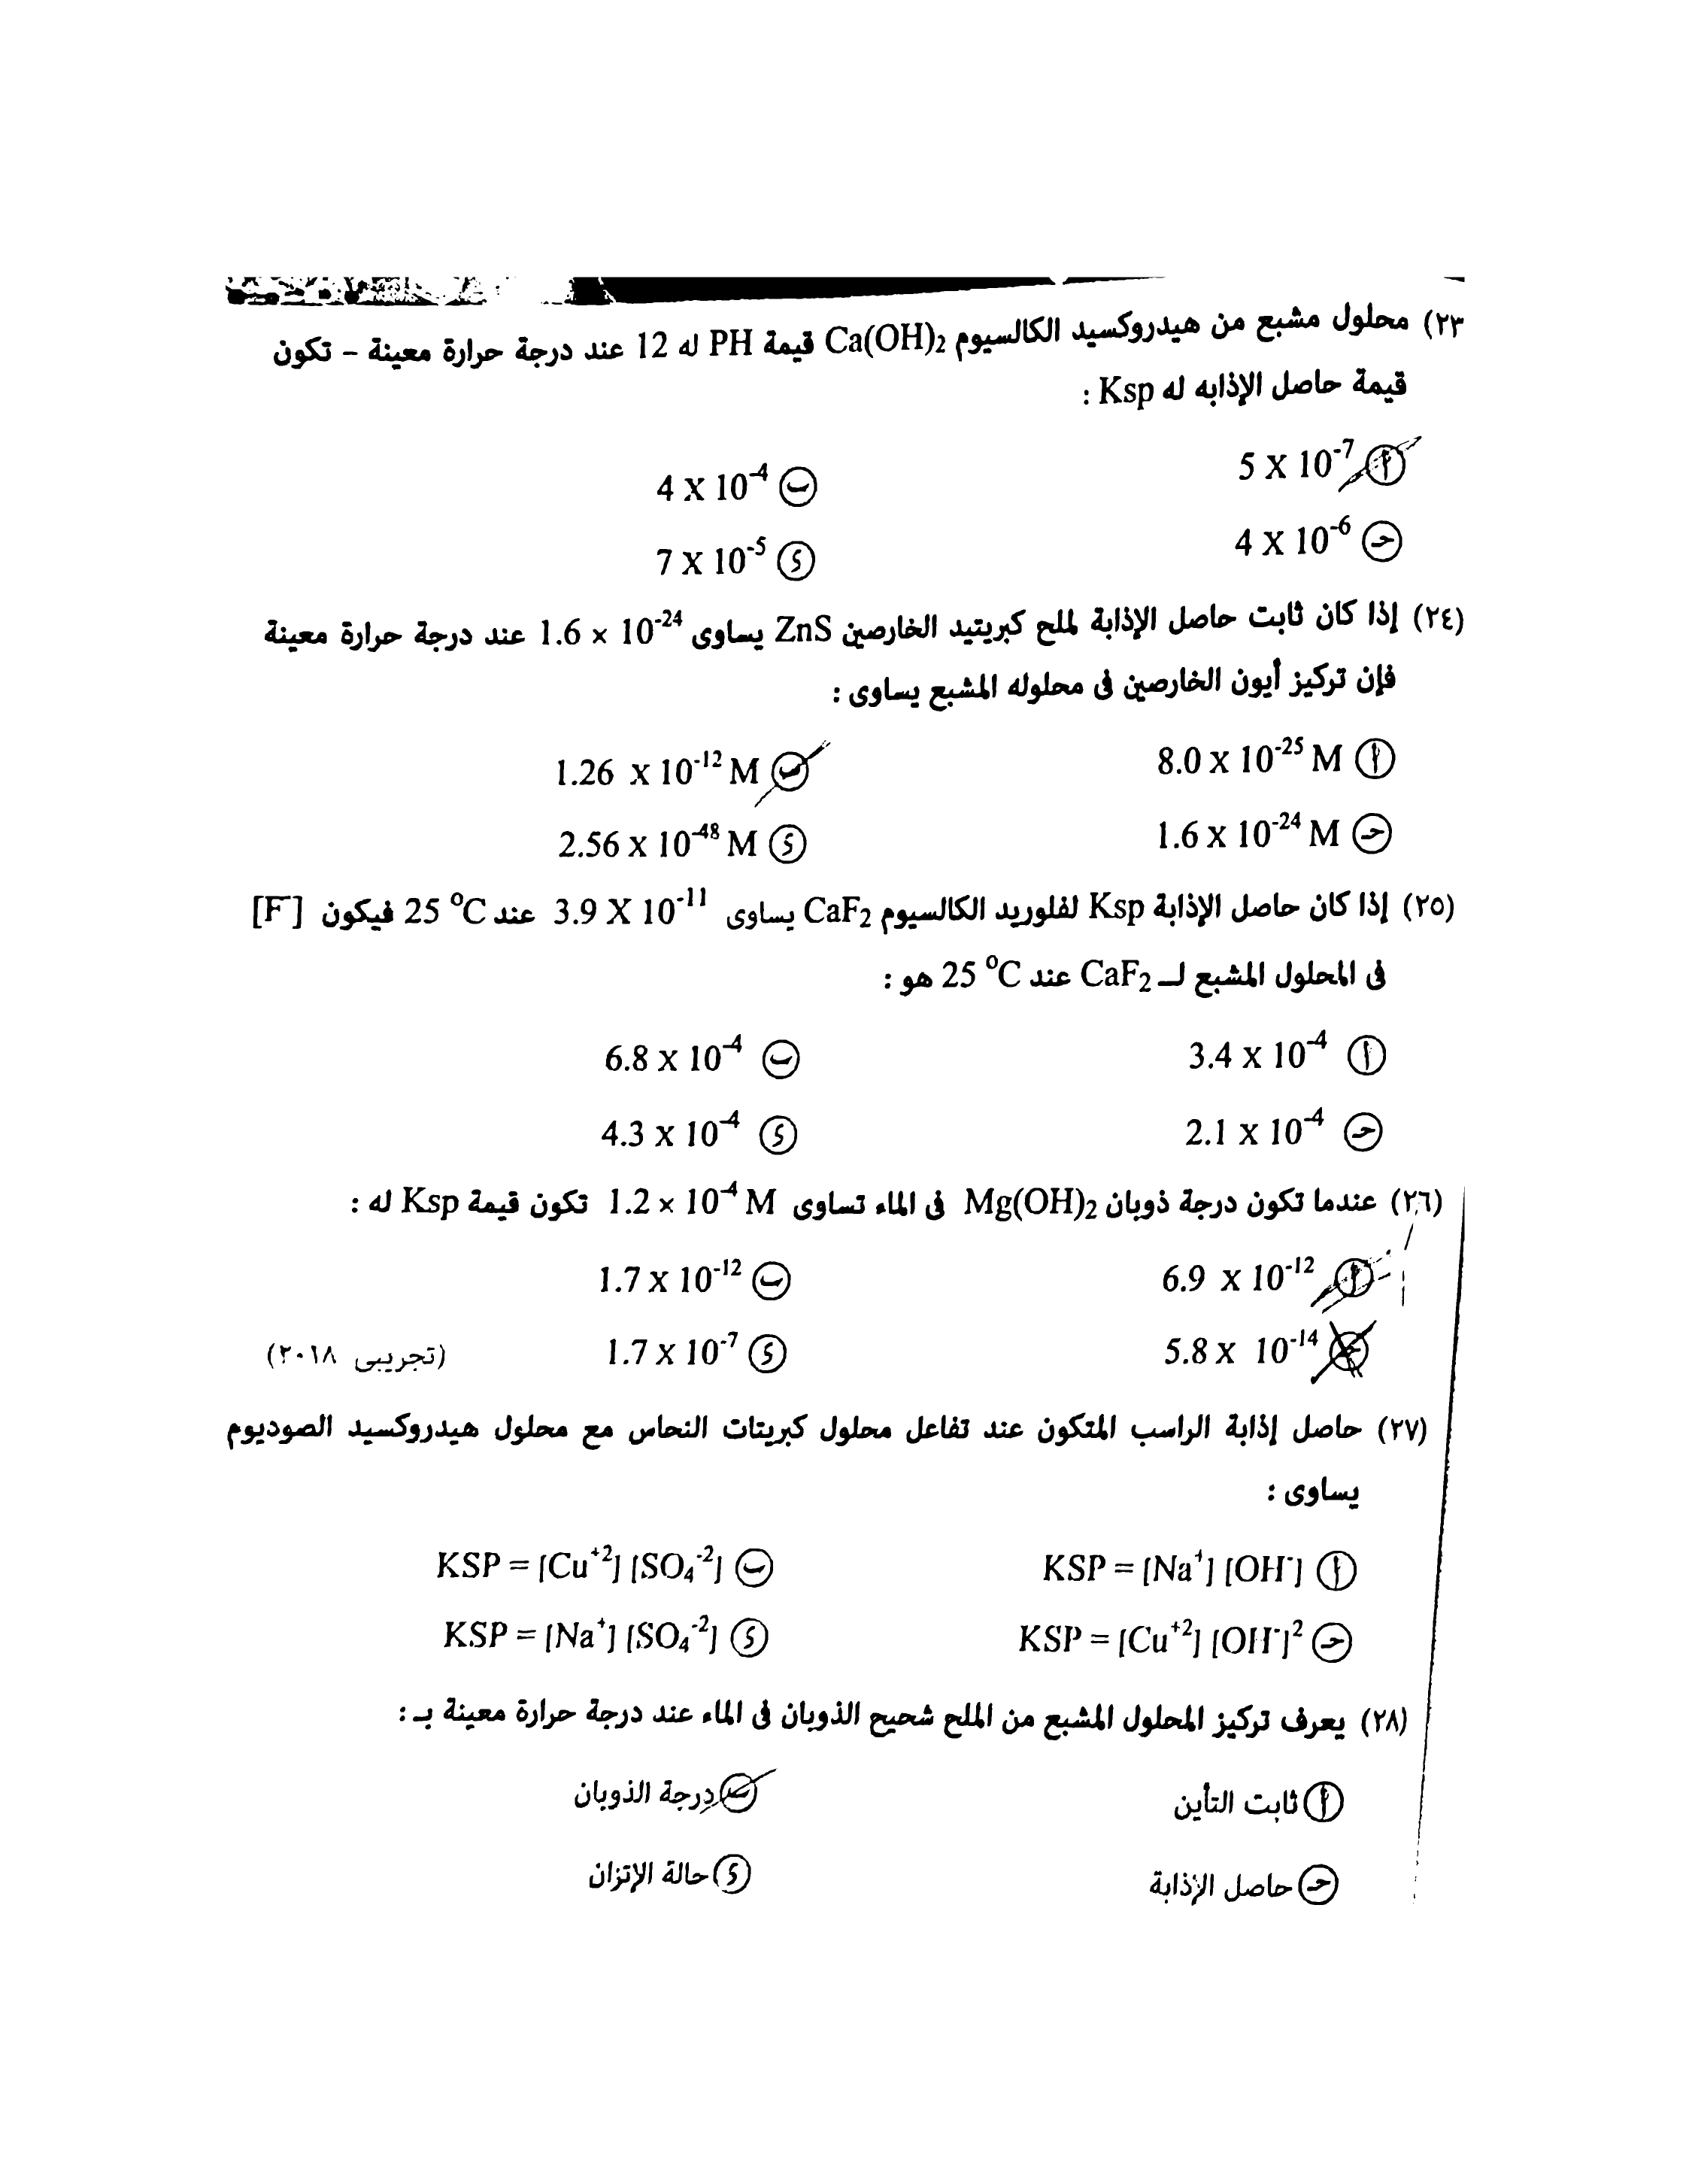 (٢٣) محلول مشبع من هيدروكسيد الكالسيوم Ca(OH)₂ قيمة PH له 12 عند درجة حرارة معينة – تكون
قيمة حاصل الإذابه له Ksp :
أ 5 X 10⁻⁷
ب 4 X 10⁻⁴
حـ 4 X 10⁻⁶
د 7 X 10⁻⁵
(٢٤) إذا كان ثابت حاصل الإذابة لملح كبريتيد الخارصين ZnS يساوى 1.6 × 10⁻²⁴ عند درجة حرارة معينة
فإن تركيز أيون الخارصين فى محلوله المشبع يساوى :
أ 8.0 X 10⁻²⁵ M
ب 1.26 X 10⁻¹² M
حـ 1.6 X 10⁻²⁴ M
د 2.56 X 10⁻⁴⁸ M
(٢٥) إذا كان حاصل الإذابة Ksp لفلوريد الكالسيوم CaF₂ يساوى 3.9 X 10⁻¹¹ عند 25 °C فيكون [F⁻]
فى المحلول المشبع لـ CaF₂ عند 25 °C هو :
أ 3.4 X 10⁻⁴
ب 6.8 X 10⁻⁴
حـ 2.1 X 10⁻⁴
د 4.3 X 10⁻⁴
(٢٦) عندما تكون درجة ذوبان Mg(OH)₂ فى الماء تساوى 1.2 × 10⁻⁴ M تكون قيمة Ksp له :
أ 6.9 X 10⁻¹²
ب 1.7 X 10⁻¹²
حـ 5.8 X 10⁻¹⁴
د 1.7 X 10⁻⁷ (تجريبى ٢٠١٨)
(٢٧) حاصل إذابة الراسب المتكون عند تفاعل محلول كبريتات النحاس مع محلول هيدروكسيد الصوديوم
يساوى :
أ KSP = [Na⁺] [OH⁻]
ب KSP = [Cu⁺²] [SO₄⁻²]
حـ KSP = [Cu⁺²] [OH⁻]²
د KSP = [Na⁺] [SO₄⁻²]
(٢٨) يعرف تركيز المحلول المشبع من الملح شحيح الذوبان فى الماء عند درجة حرارة معينة بـ :
أ ثابت التأين
ب درجة الذوبان
حـ حاصل الإذابة
د حالة الإتزان